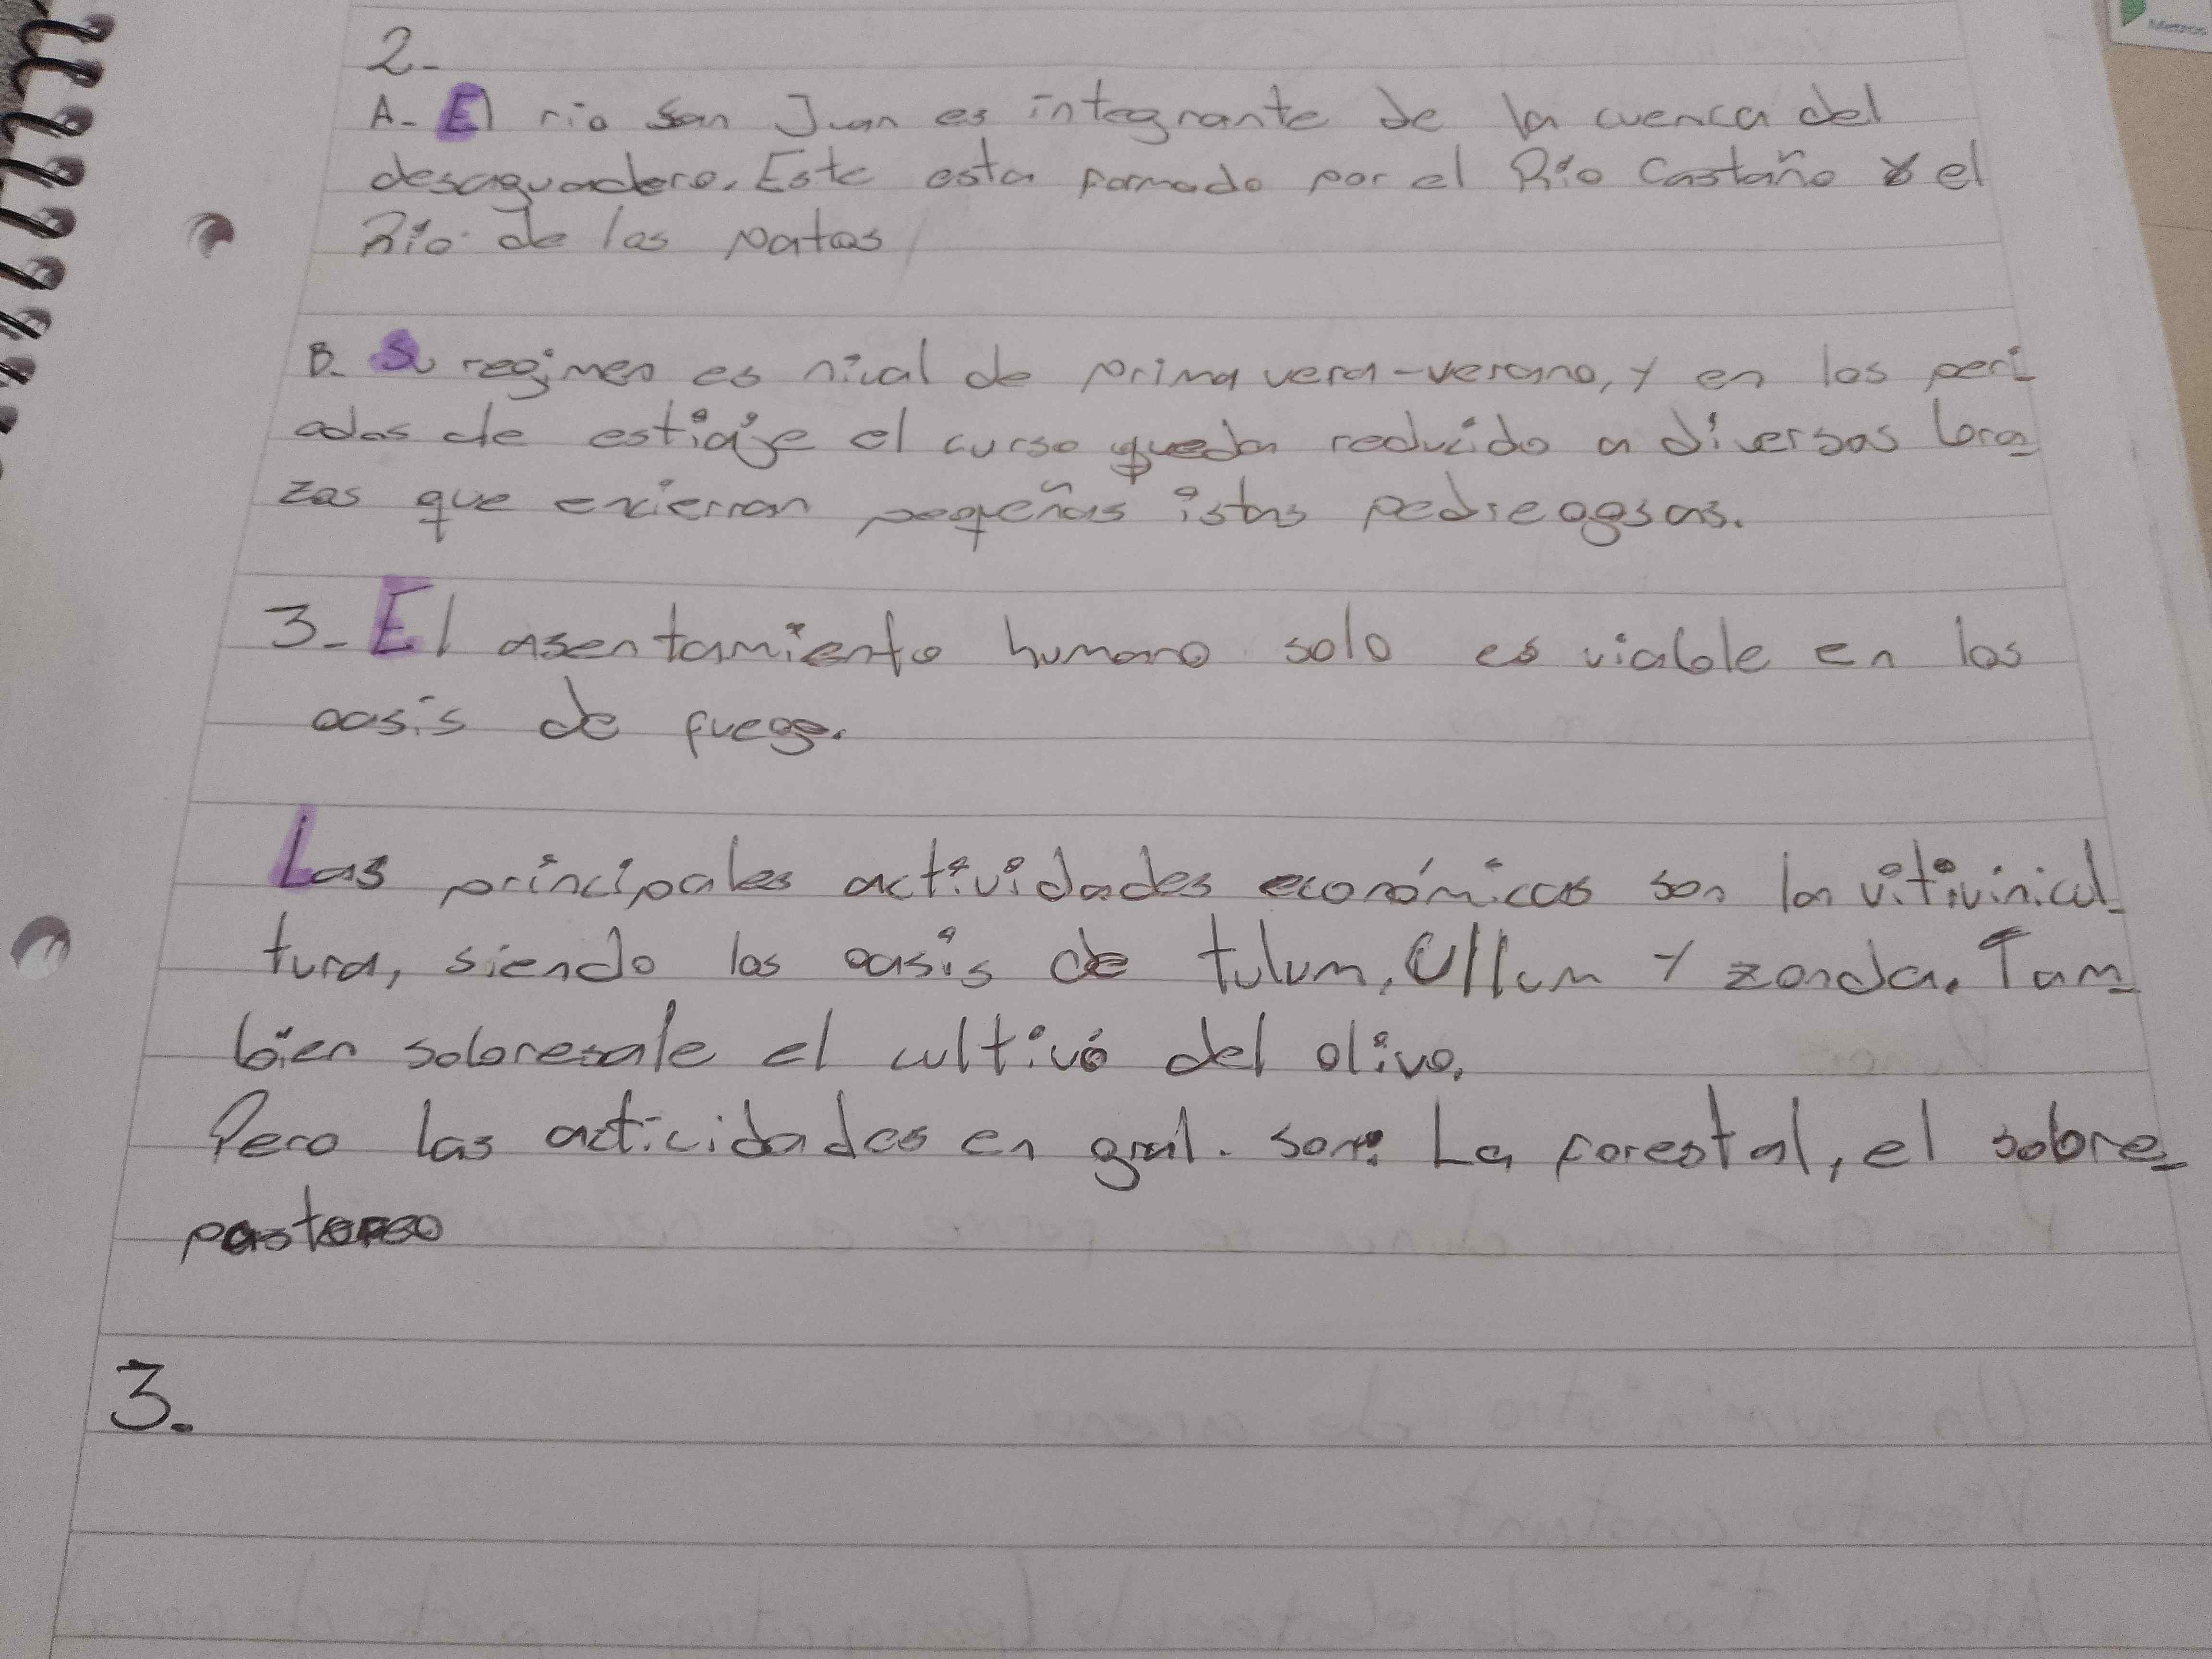 2-
A- El rio San Juan es integrante de la cuenca del
desaguadero. Este esta formado por el Río Castaño y el
Río de los patos
B- Su regimen es nival de primavera-verano, y en los peri-
odos de estiaje el curso queda reducido a diversos bra-
zos que encierran pequeñas islas pedregosas.
3- El asentamiento humano solo es viable en los
oasis de fuego.
Las principales actividades económicas son la vitivinicul-
tura, siendo los oasis de tulum, Ullum y zonda. Tam-
bien sobresale el cultivo del olivo.
Pero las acticidades en gral. son: La forestal, el sobre-
pastoreo
3.
Metros